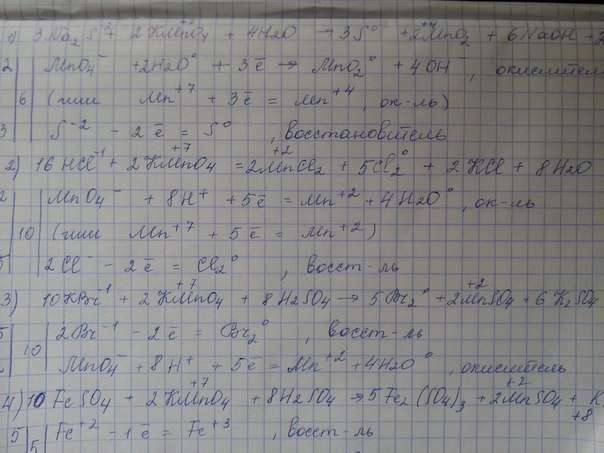 1) 3Na2S⁻² + 2KMnO4⁺⁷ + 4H2O → 3S⁰ + 2MnO2⁺⁴ + 6NaOH + 2
2| MnO4⁻ + 2H2O⁰ + 3ē → MnO2⁰ + 4OH⁻, окислител
6 (или Mn⁺⁷ + 3ē = Mn⁺⁴, ок-ль)
3| S⁻² - 2ē = S⁰, восстановитель
2) 16HCl⁻¹ + 2KMnO4⁺⁷ = 2MnCl2⁺² + 5Cl2⁰ + 2KCl + 8H2O
2| MnO4⁻ + 8H⁺ + 5ē = Mn⁺² + 4H2O⁰, ок-ль
10 (или Mn⁺⁷ + 5ē = Mn⁺²)
5| 2Cl⁻ - 2ē = Cl2⁰, восст-ль
3) 10KBr⁻¹ + 2KMnO4⁺⁷ + 8H2SO4 → 5Br2⁰ + 2MnSO4⁺² + 6K2SO4
5| 2Br⁻¹ - 2ē = Br2⁰, восст-ль
10
2| MnO4⁻ + 8H⁺ + 5ē = Mn⁺² + 4H2O⁰, окислитель
4) 10FeSO4 + 2KMnO4⁺⁷ + 8H2SO4 → 5Fe2(SO4)3 + 2MnSO4⁺² + K
+8
5|5| Fe⁺² - 1ē = Fe⁺³, восст-ль